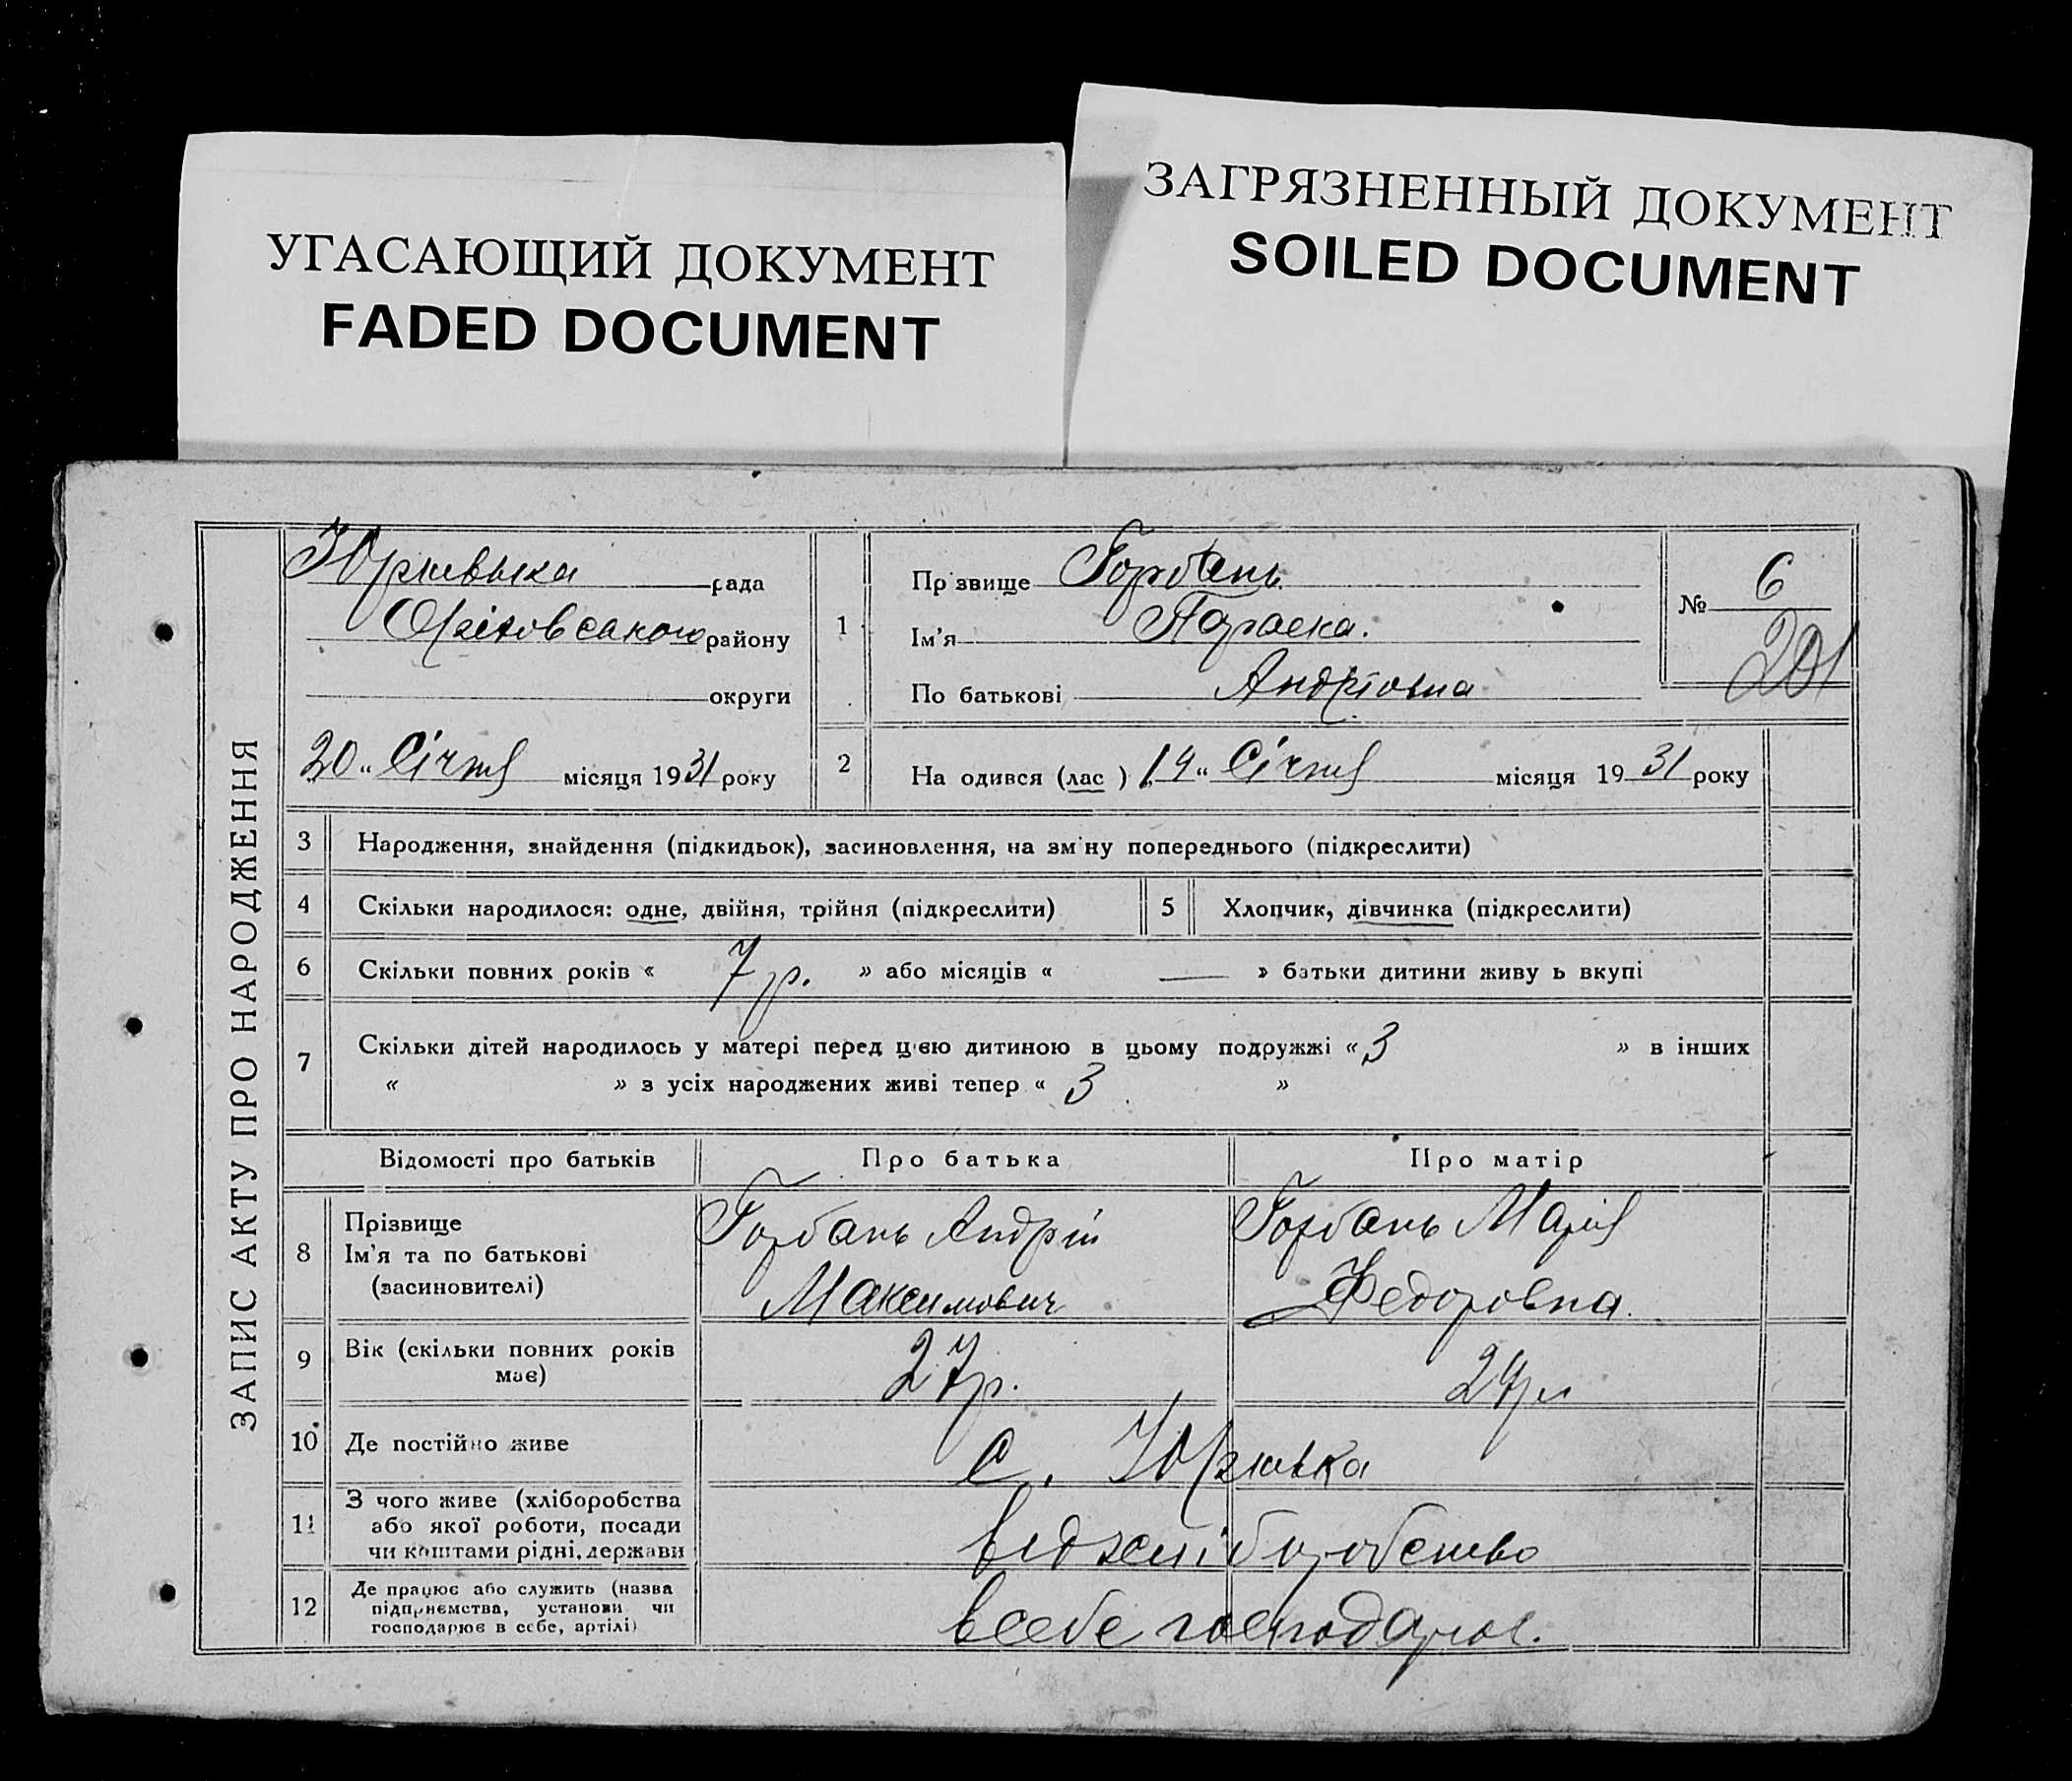 УГАСАЮЩИЙ ДОКУМЕНТ
FADED DOCUMENT
ЗАГРЯЗНЕННЫЙ ДОКУМЕНТ
SOILED DOCUMENT
ЗАПИС АКТУ ПРО НАРОДЖЕННЯ
рада
району
округи
20 " Січня місяця 1931 року
1 Пр звище Горбань
Ім'я Параска.
По батькові Андріовна
№ 6
201
2 На одився (лас ) 19 " Січня місяця 1931 року
3 Народження, знайдення (підкидьок), засиновлення, на зм ну попереднього (підкреслити)
4 Скільки народилося: одне, двійня, трійня (підкреслити) 5 Хлопчик, дівчинка (підкреслити)
6 Скільки повних років « 7 р. » або місяців « — » батьки дитини живу ь вкупі
7 Скільки дітей народилось у матері перед цією дитиною в цьому подружжі « 3 » в інших
« » з усіх народжених живі тепер « 3 »
Відомості про батьків Про батька Про матір
8 Прізвище
Ім'я та по батькові
(засиновителі)
Горбань Андрій
Максимович
Горбань Марія
Федоровна.
9 Вік (скільки повних років
має)
27р.
10 Де постійно живе с. Юрківка
11 З чого живе (хліборобства
або якої роботи, посади
чи коштами рідні, держави
від хліборобство
12 Де працює або служить (назва
підприємства, установи чи
господарює в себе, артілі)
в себе господарює.